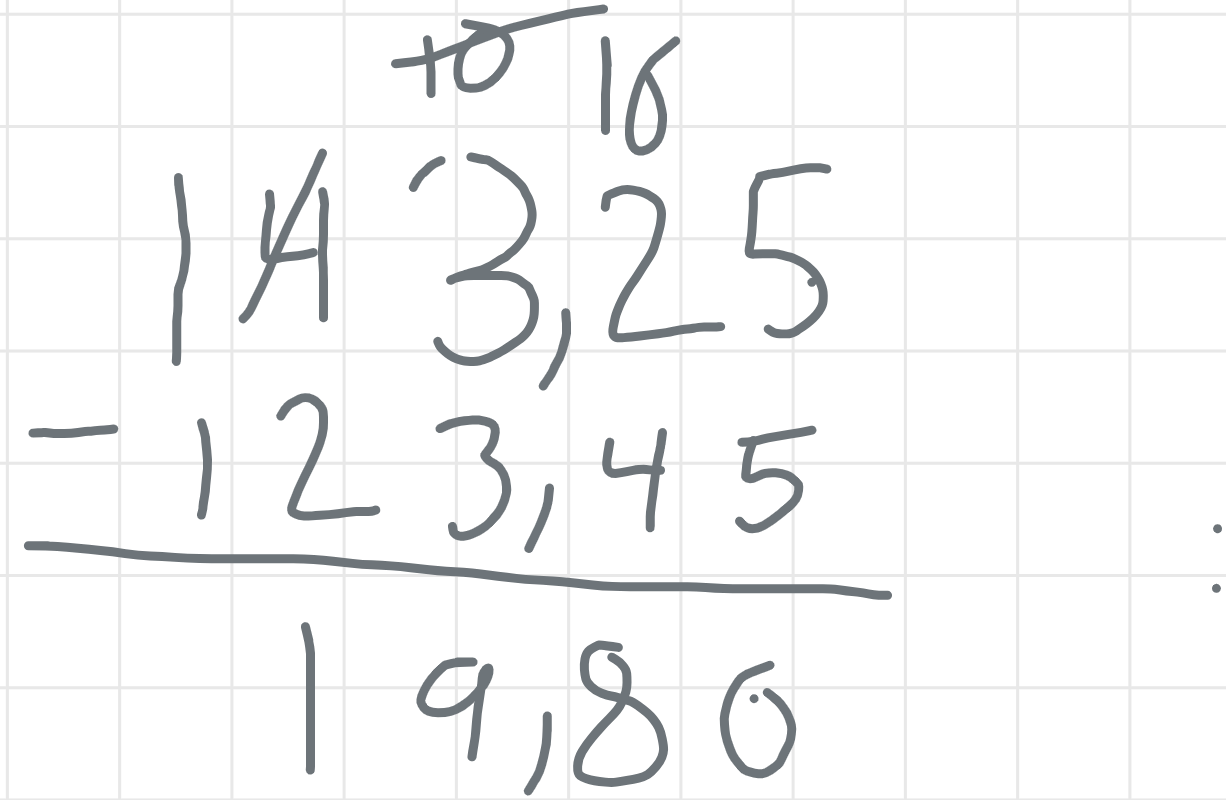 10 10
143,25
- 123,45
19,80